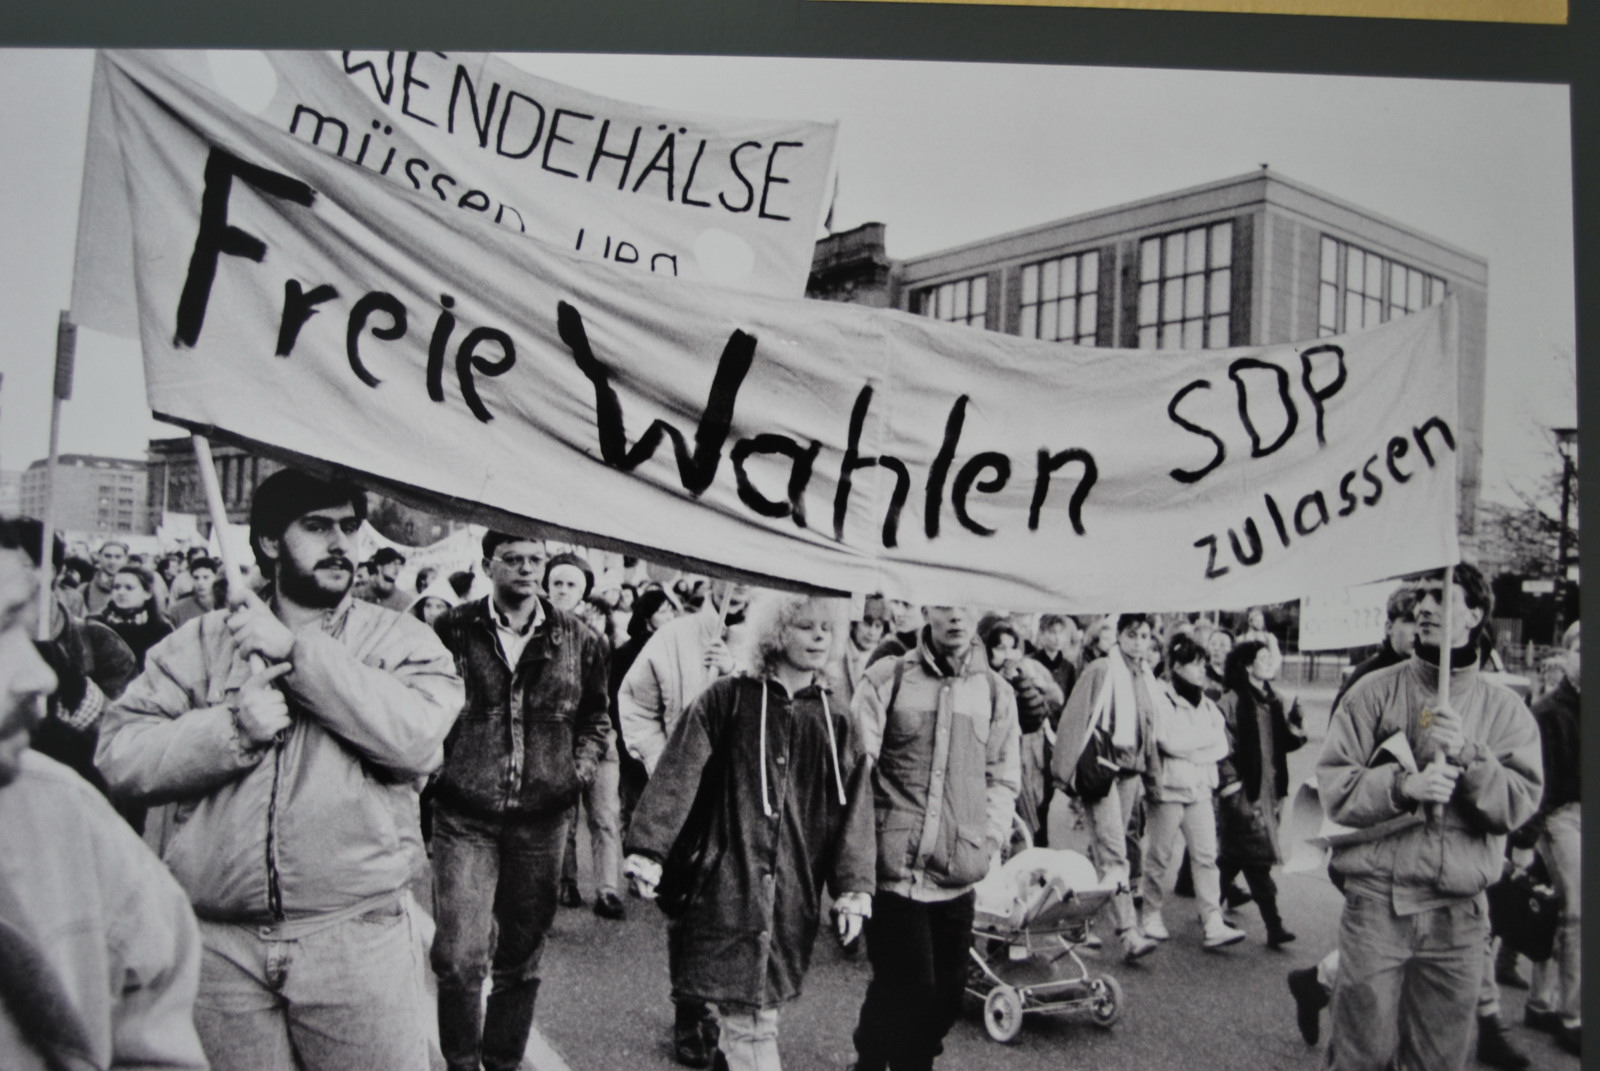 WENDEHÄLSE
müssen
Freie Wahlen SDP
zulassen